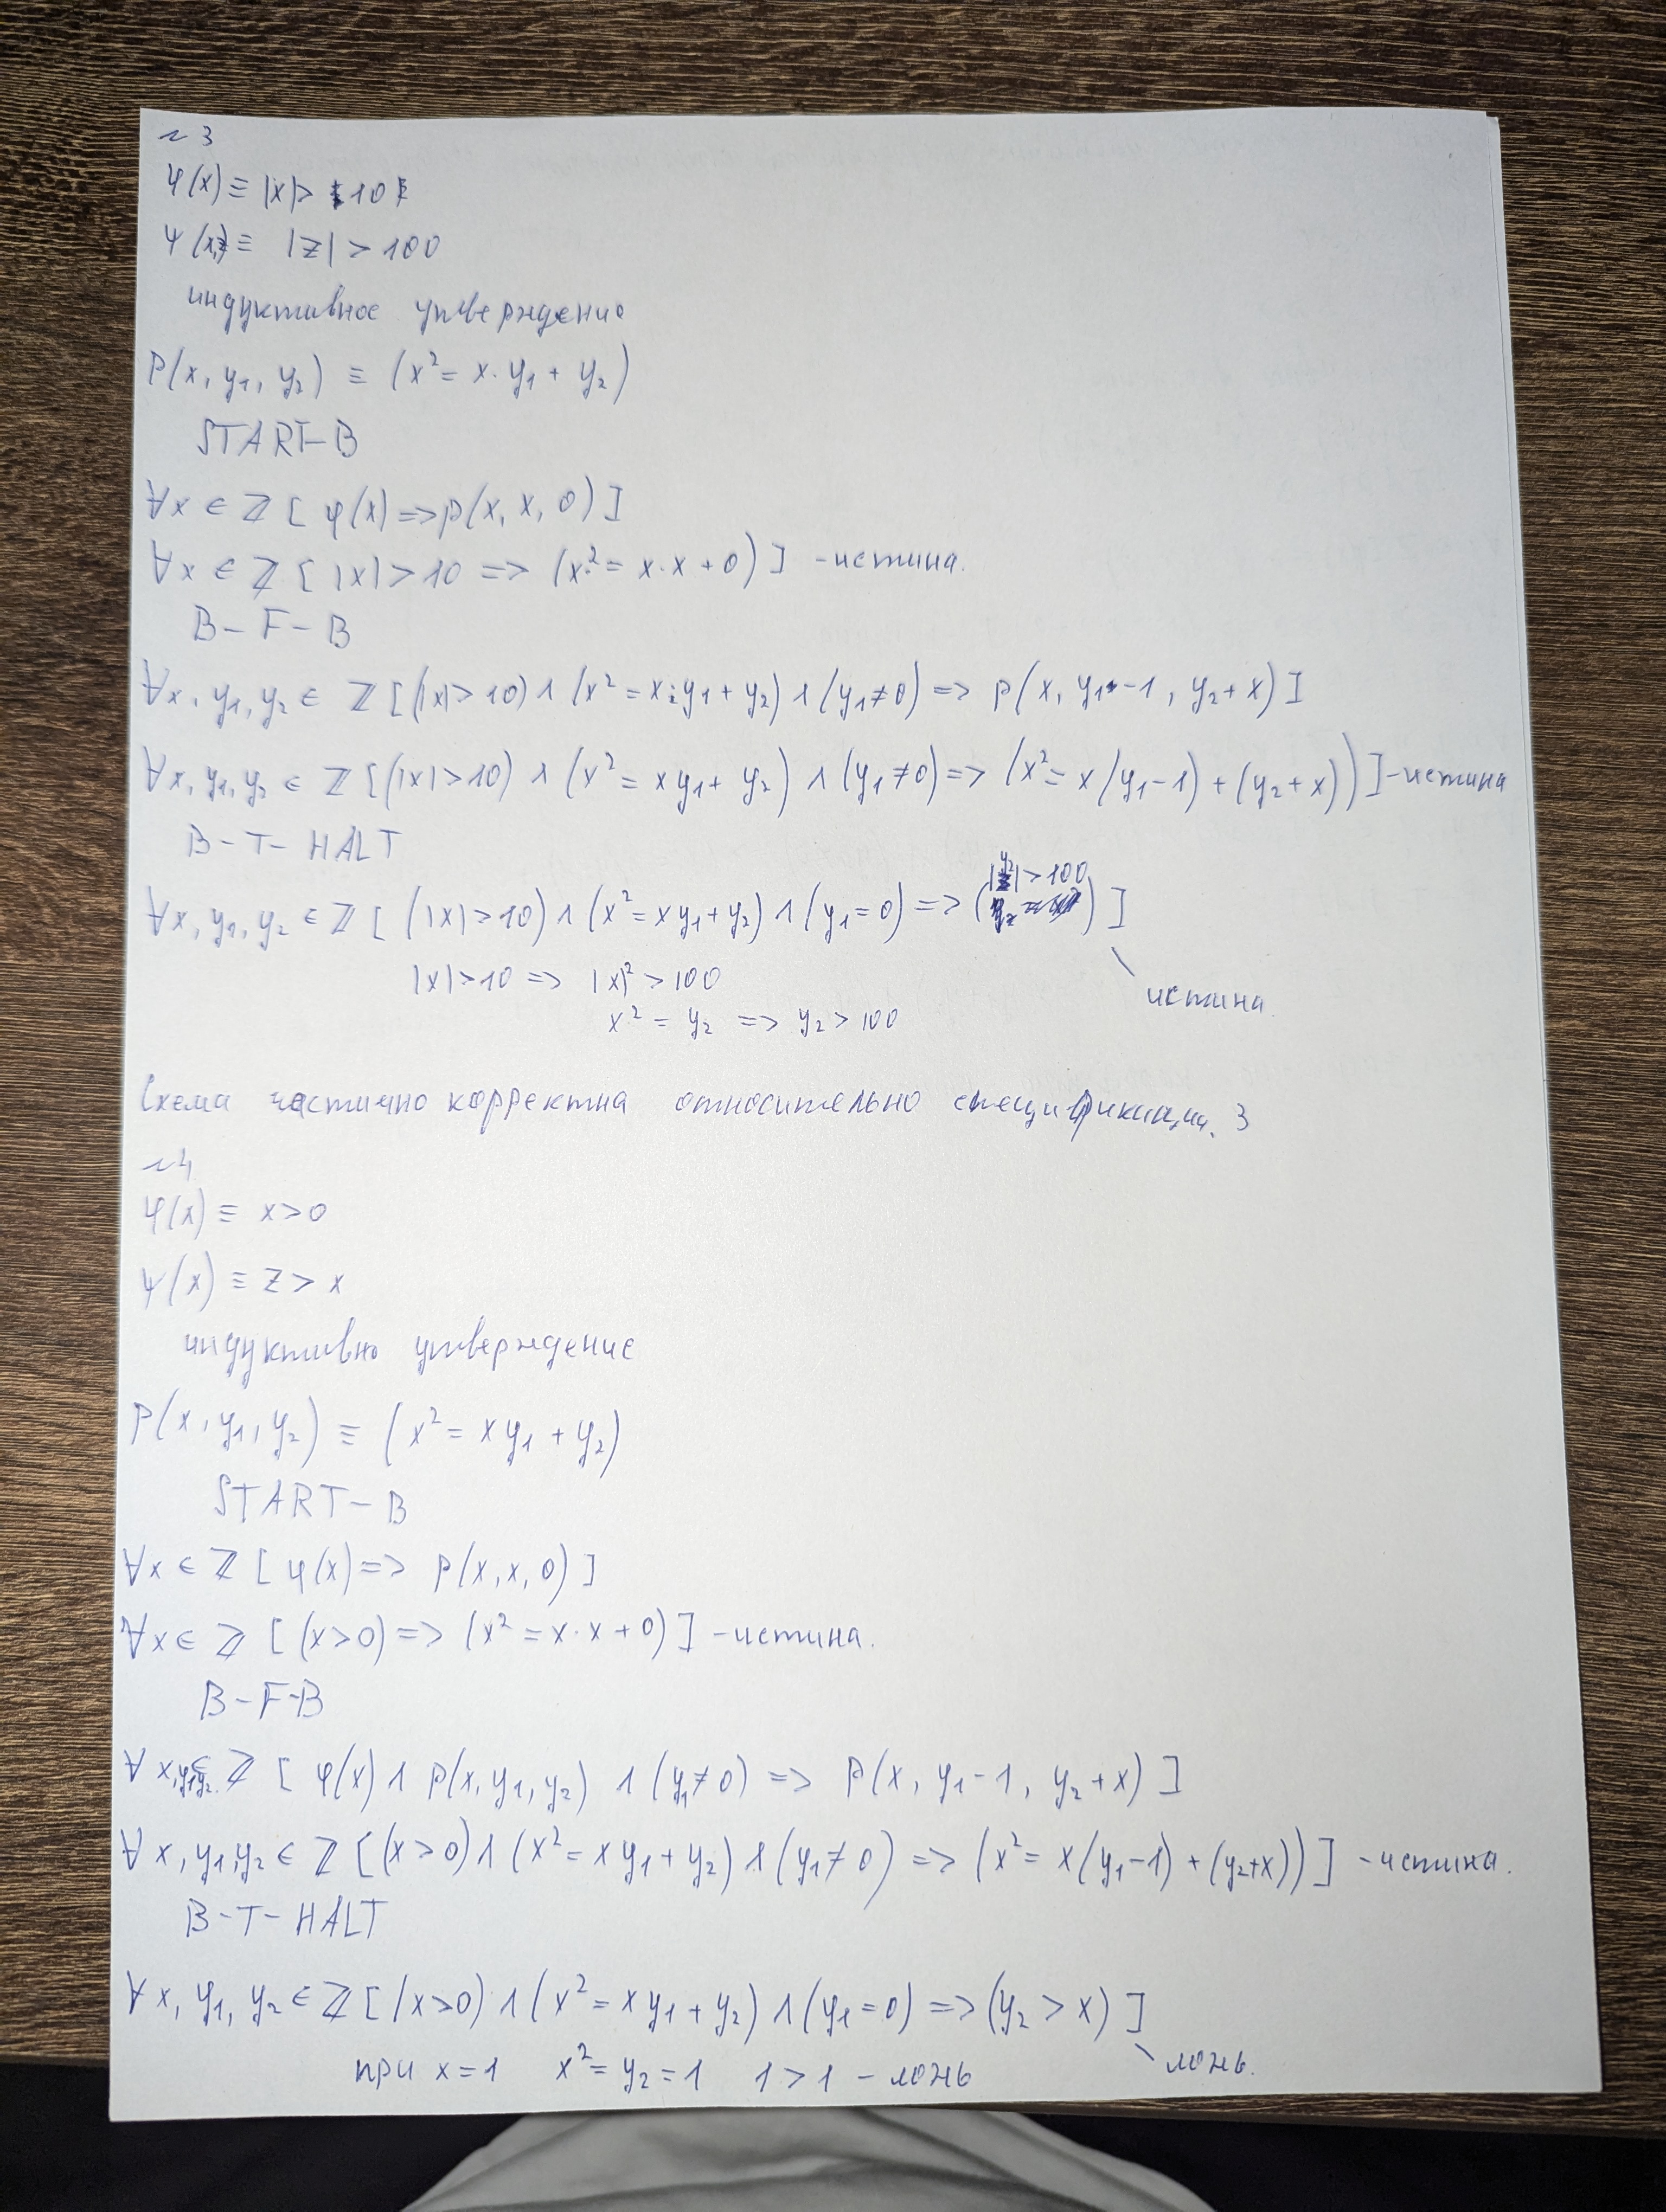 № 3
φ(x) ≡ |x| > 10
ψ(x,z) ≡ |z| > 100
индуктивное утверждение
P(x, y₁, y₂) ≡ (x² = x · y₁ + y₂)
START-B
∀x ∈ ℤ [ φ(x) => p(x, x, 0) ]
∀x ∈ ℤ [ |x| > 10 => (x² = x · x + 0) ] - истина.
B - F - B
∀x, y₁, y₂ ∈ ℤ [(|x| > 10) ∧ (x² = x · y₁ + y₂) ∧ (y₁ ≠ 0) => p(x, y₁ - 1, y₂ + x) ]
∀x, y₁, y₂ ∈ ℤ [(|x| > 10) ∧ (x² = x y₁ + y₂) ∧ (y₁ ≠ 0) => (x² = x(y₁ - 1) + (y₂ + x)) ] - истина
B - T - HALT
∀x, y₁, y₂ ∈ ℤ [ (|x| > 10) ∧ (x² = x y₁ + y₂) ∧ (y₁ = 0) => (|y₂| > 100) ]
истина.
|x| > 10 => |x|² > 100
x² = y₂ => y₂ > 100
Схема частично корректна относительно спецификации. 3
№ 4
φ(x) ≡ x > 0
ψ(x) ≡ z > x
индуктивно утверждение
P(x, y₁, y₂) ≡ (x² = x y₁ + y₂)
START - B
∀x ∈ ℤ [ φ(x) => P(x, x, 0) ]
∀x ∈ ℤ [ (x > 0) => (x² = x · x + 0) ] - истина.
B - F - B
∀ x, y₁, y₂ ∈ ℤ [ φ(x) ∧ P(x, y₁, y₂) ∧ (y₁ ≠ 0) => P(x, y₁ - 1, y₂ + x) ]
∀ x, y₁, y₂ ∈ ℤ [ (x > 0) ∧ (x² = x y₁ + y₂) ∧ (y₁ ≠ 0) => (x² = x(y₁ - 1) + (y₂ + x)) ] - истина.
B - T - HALT
∀ x, y₁, y₂ ∈ ℤ [ (x > 0) ∧ (x² = x y₁ + y₂) ∧ (y₁ = 0) => (y₂ > x) ]
ложь.
при x = 1 x² = y₂ = 1 1 > 1 - ложь